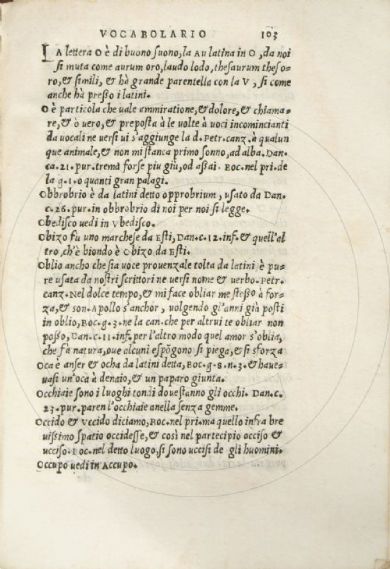 VOCABOLARIO 103
LA lettera O è di buono suono, la AU latina in O, da noi
si muta come aurum oro, laudo lodo, thesaurum theso-
ro, & simili, & hà grande parentella con la V, si come
anche hà presso i latini.
O è particola che vale ammiratione, & dolore, & chiama-
re, & ò vero, & preposta à le volte à voci incomincianti
da vocali ne versi vi s'aggiunge la d. Petr. canz. à qualun
que animale, & non mi stanca primo sonno, od alba. Dan.
ca. 21. pur. tremò forse piu giu, od assai. Boc. nel pri. de
la g. 1. o quanti gran palagi.
Obbrobrio è da latini detto opprobrium, usato da Dan.
c. 26. pur. in obbrobrio di noi per noi si legge.
Obedisco uedi in Vbedisco.
Obizo fu uno marchese da Esti, Dan. c. 12. inf. & quell'al
tro, ch'è biondo è Obizo da Esti.
Oblio ancho che sia voce prouenzale tolta da latini è pu-
re usata da nostri scrittori ne versi nome & verbo. Petr.
canz. Nel dolce tempo, & mi face obliar me stesso à for-
za, & son. Apollo s'anchor, volgendo gl'anni già posti
in oblio, Boc. g. 3. ne la can. che per altrui te obliar non
posso, Dan. c. 11. inf. per l'altro modo quel amor s'oblia,
che fà natura, oue alcuni espõgono si piega, & si sforza
Oca è anser & ocha da latini detta, Boc. g. 8. n. 3. & haue-
uasi un'oca è denaio, & un paparo giunta.
Occhiaie sono i luoghi tondi doue stanno gli occhi. Dan. c.
23. pur. paren l'occhiaie anella senza gemme.
Occido & vccido diciamo, Boc. nel pri. ma quello infra bre
uissimo spatio occidesse, & così nel partecipio occiso &
ucciso. Boc. nel detto luogo, si sono uccisi de gli huomini.
Occupo uedi in Accupo.